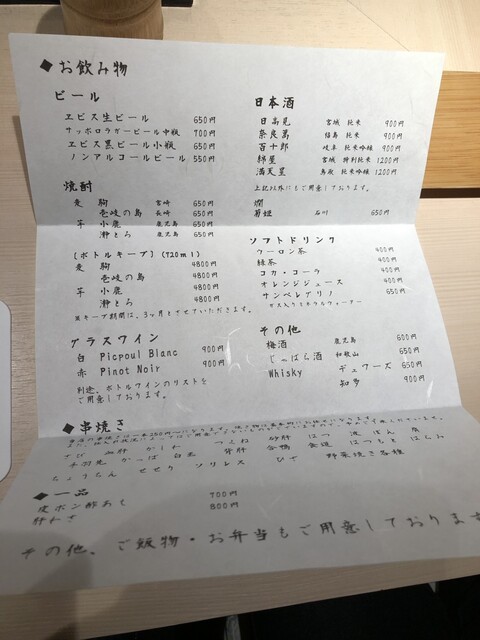 ◆お飲み物
ビール
ヱビス生ビール 650円
サッポロラガービール中瓶 700円
ヱビス黒ビール小瓶 650円
ノンアルコールビール 550円
焼酎
麦 駒 宮崎 650円
壱岐の島 長崎 650円
芋 小鹿 鹿児島 650円
瀞とろ 鹿児島 650円
(ボトルキープ)(720ml)
麦 駒 4800円
壱岐の島 4800円
芋 小鹿 4800円
瀞とろ 4800円
※キープ期間は、3ヶ月とさせていただきます。
グラスワイン
白 Picpoul Blanc 900円
赤 Pinot Noir 900円
別途、ボトルワインのリストを
ご用意しております。
日本酒
日高見 宮城 純米 900円
奈良萬 福島 純米 900円
百十郎 岐阜 純米吟醸 900円
綿屋 宮城 特別純米 1200円
満天星 鳥取 純米吟醸 1200円
上記以外にもご用意しております。
燗
菊姫 石川 650円
ソフトドリンク
ウーロン茶 400円
緑茶 400円
コカ・コーラ 400円
オレンジジュース 400円
サンペレグリノ 650円
ガス入りミネラルウォーター
その他
梅酒 鹿児島 600円
じゃばら酒 和歌山 650円
Whisky デュワーズ 650円
知多 900円
◆串焼き
さび 血肝 かしわ つくね 砂肝 はつ ぼん
手羽先 かっぱ 背肝 合鴨 食道 はつもと はらみ
ちょうちん せせり ソリレス ひざ 野菜焼き各種
◆一品
皮ポン酢あし 700円
肝わさ 800円
その他、ご飯物・お弁当もご用意しております